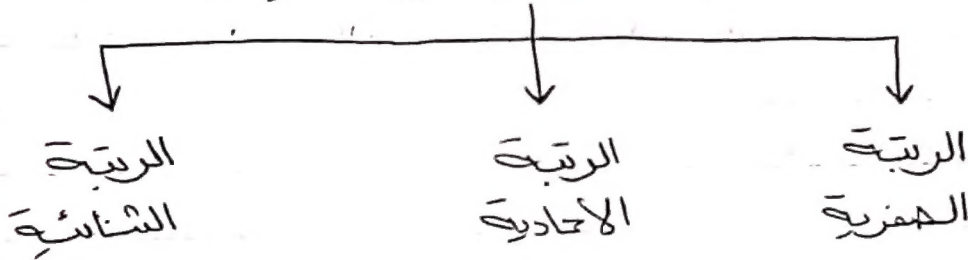 الرتبة
الصفرية
الرتبة
الأحادية
الرتبة
الثنائية